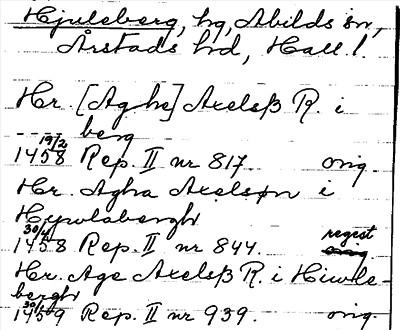 Hjuleberg, hg, Abilds sn,
Årstads hd, Hall.
Hr. [Aghe] Axelsß R. i
--- berg
19/2
1458 Rep. II nr 817. orig.
Hr. Agha Axelsøn i
Hywlabergh
30/4 regest
1458 Rep. II nr 844. orig
Hr. Age Axelsß R. i Hiwle-
bergh
1459 Rep. II nr 939. orig.